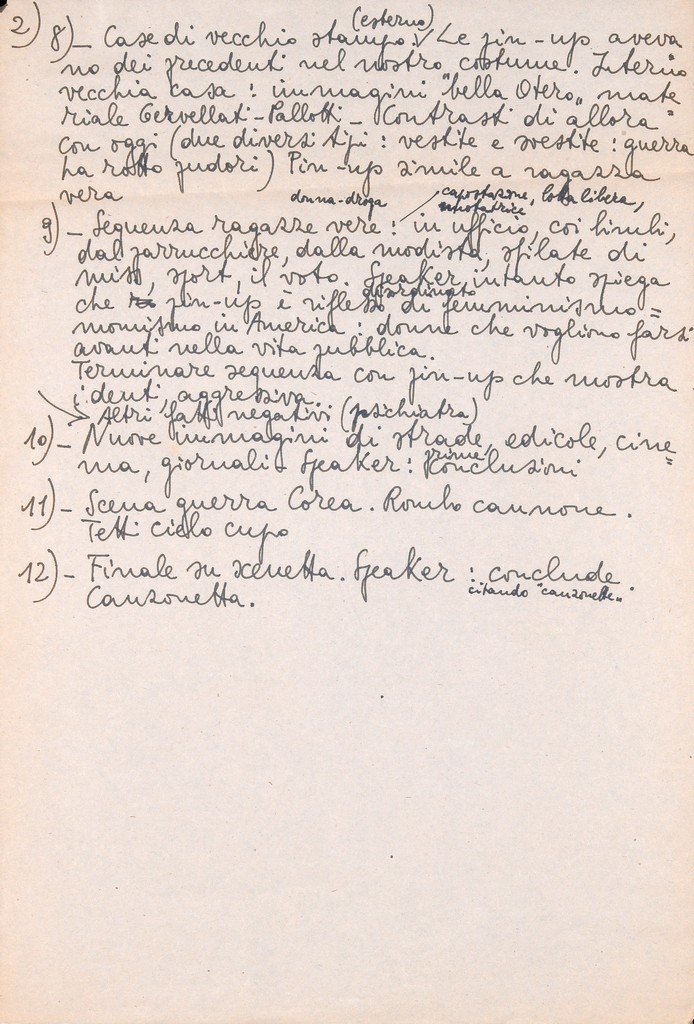 2)
(esterno)
8) – Case di vecchio stampo. Le pin-up aveva
no dei precedenti nel nostro costume. Interno
vecchia casa: immagini "bella Otero" mate
riale Cervellati-Pallotti – Contrasti di allora
con oggi (due diversi tipi: vestite e svestite: guerra
ha rotto pudori) Pin-up simile a ragazza
vera
donna-droga capostazione, lotta libera,
nuotatrice
9) – Sequenza ragazze vere: in ufficio, coi bimbi,
dal parrucchiere, dalla modista, sfilate di
miss, sport, il voto. Speaker intanto spiega
disordinato
che pin-up è riflesso di femminismo =
momismo in America: donne che vogliono farsi
avanti nella vita pubblica.
Terminare sequenza con pin-up che mostra
i denti, aggressiva.
Altri fatti negativi (psichiatra)
10) – Nuove immagini di strade, edicole, cine=
ma, giornali – Speaker: prime conclusioni
11) – Scena guerra Corea. Rombo cannone.
Tetti cielo cupo
12) – Finale su scenetta. Speaker: conclude
citando "canzonette"
Canzonetta.